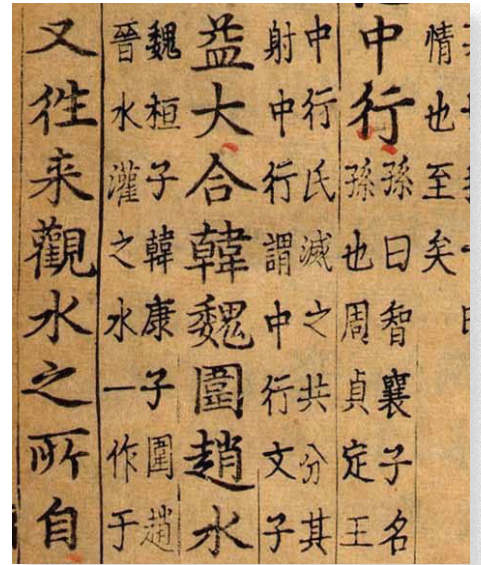 情也至矣
中行
孫曰智襄子名
孫也周貞定王
中行氏滅之共分其
射中行謂中行文子
益大合韓魏圍趙水
魏桓子韓康子圍趙
晉水灌之水一作于
又徃来觀水之所自